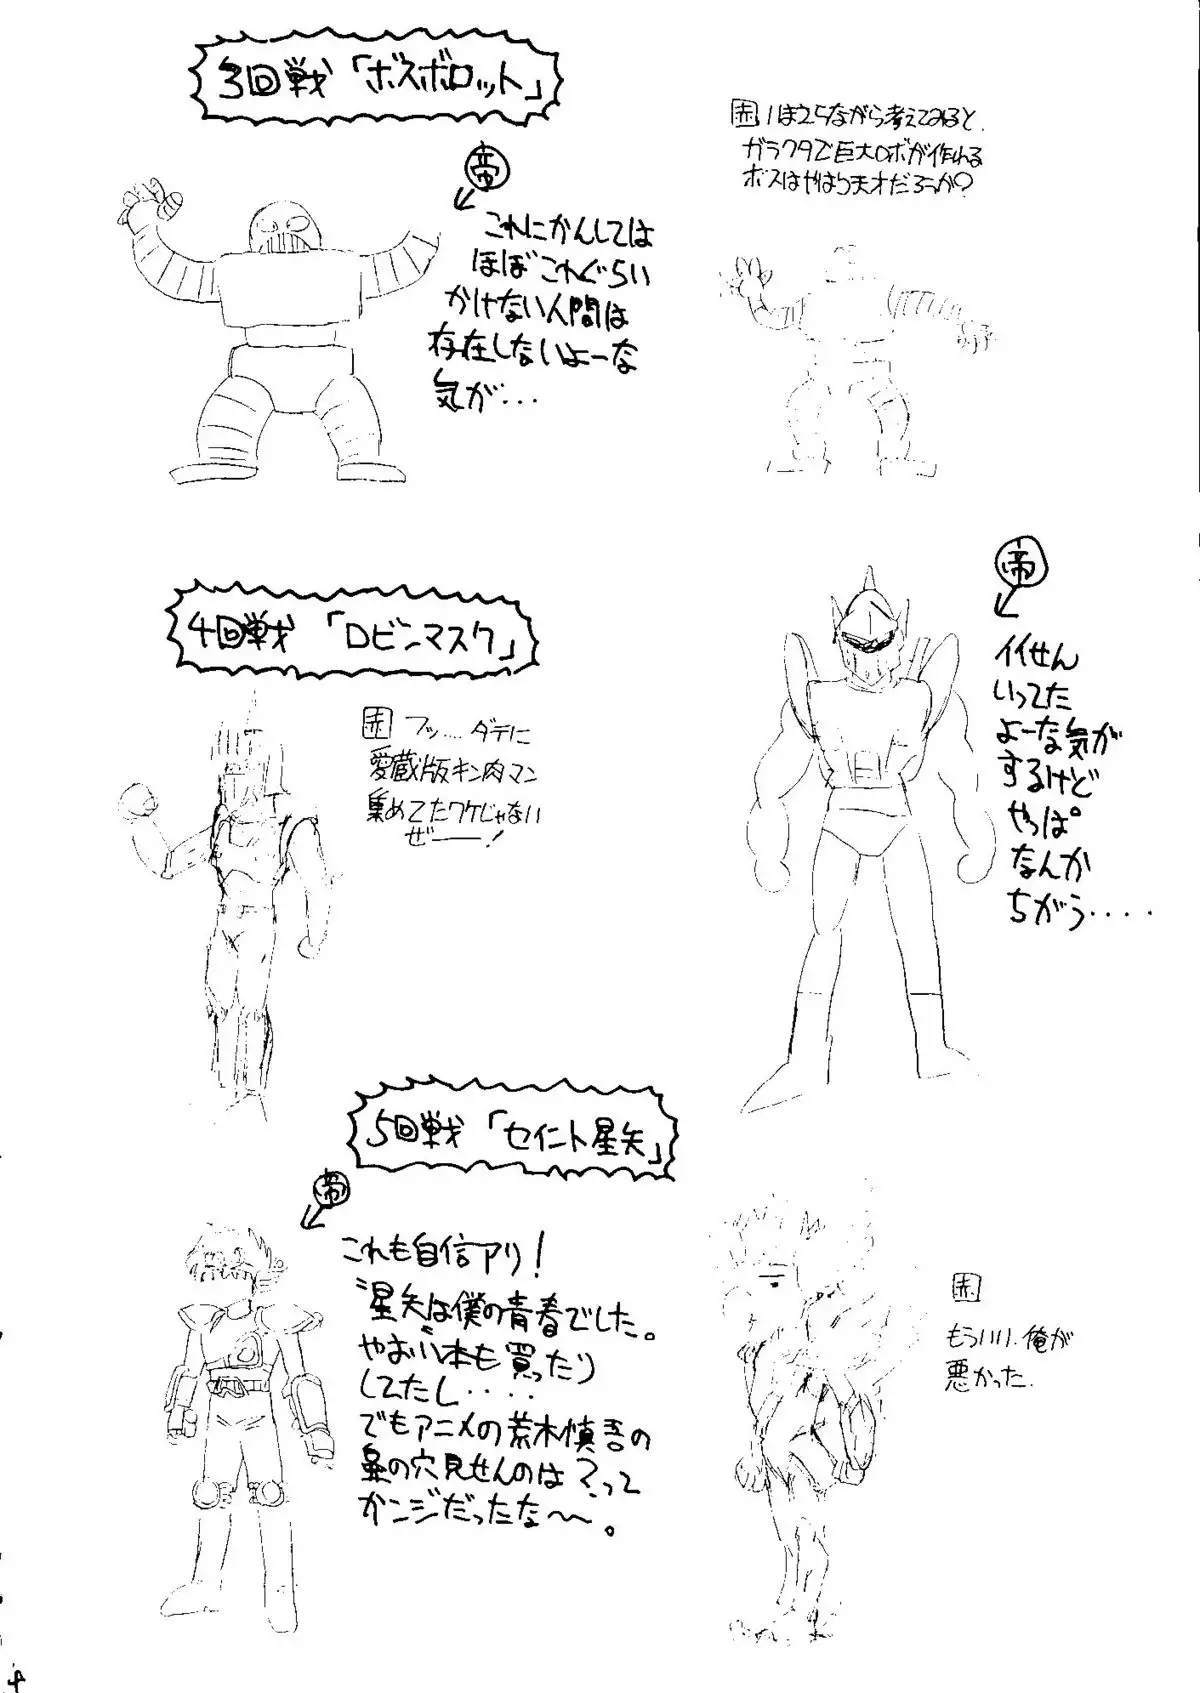 3回戦「ボスボロット」
帝
これにかんしては
ほぼこれぐらい
かけない人間は
存在しないよーな
気が・・・
赤 1ほ25ながら考えてみると、
ガラクタで巨大ロボが作れる
ボスはやはり天才だろうか?
4回戦「ロビンマスク」
赤 フッ‥‥ダテに
愛蔵版キン肉マン
集めてたワケじゃない
ぜ――!
帝
イイせん
いってた
よーな気が
するけど
やっぱ
なんか
ちがう・・・・
5回戦「セイント星矢」
帝
これも自信アリ!
"星矢は僕の青春でした。"
やおい本も買ったり
してたし・・・・
でもアニメの荒木慎吾の
鼻の穴見せんのは?って
カンジだったな〜〜。
赤
もういい、俺が
悪かった.
4